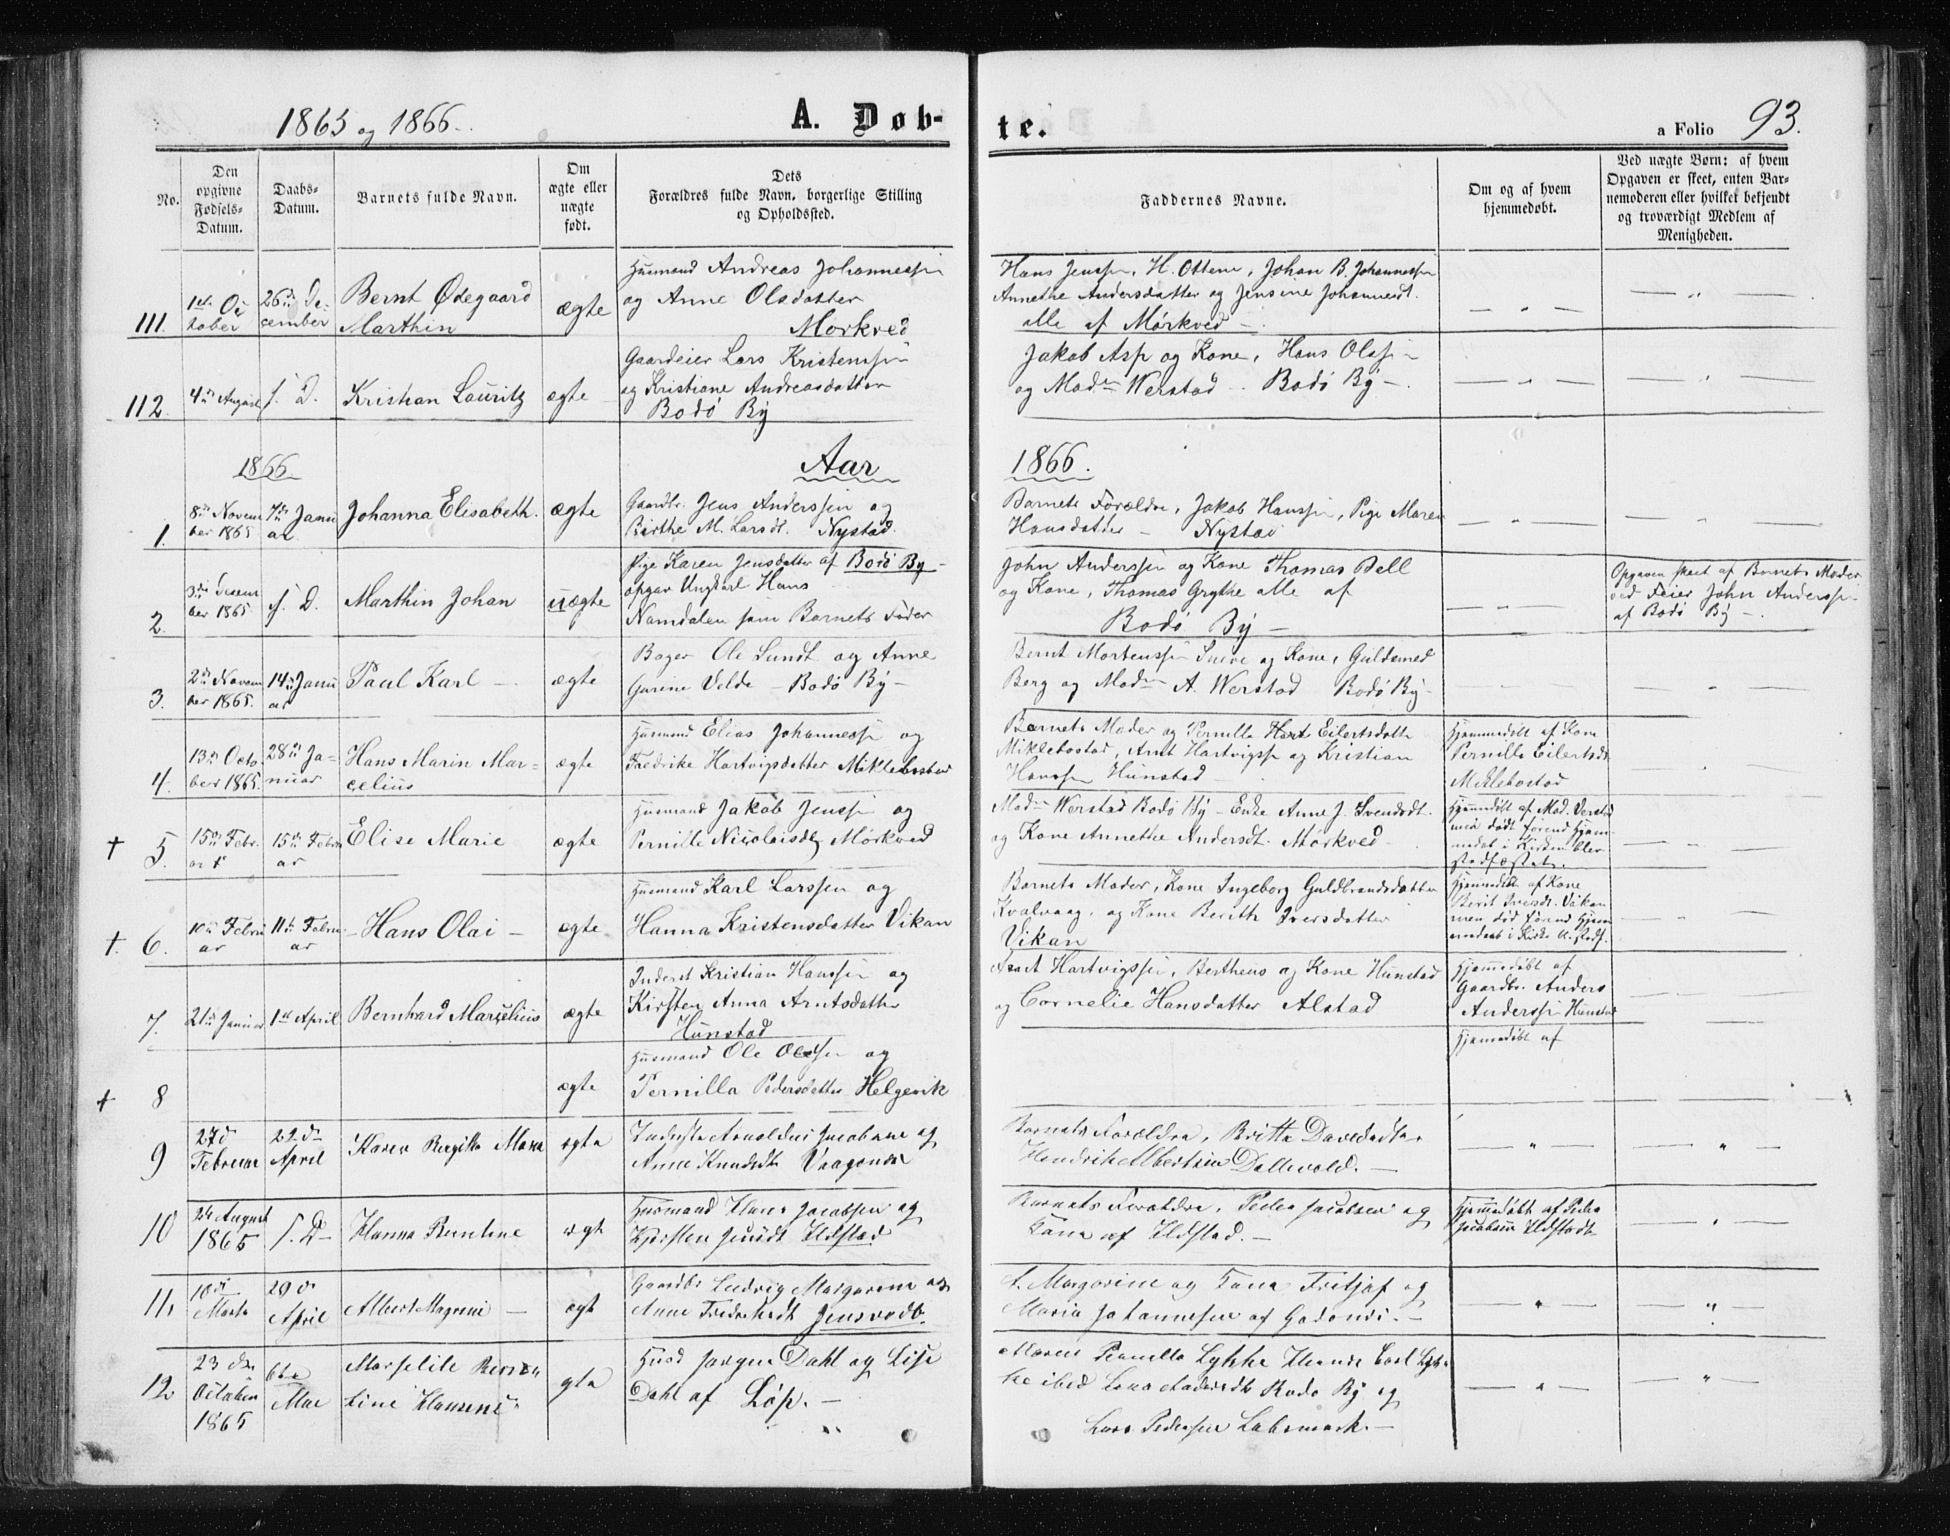 1865 og 1866.
A. Døb-
te.
a Folio 93.
No.
Den
opgivne
Fødsels-
Datum.
Daabs-
Datum.
Barnets fulde Navn.
Om
ægte eller
uægte
født.
Dets
Forældres fulde Navn, borgerlige Stilling
og Opholdssted.
Faddernes Navne.
Om og af hvem
hjemmedøbt.
Ved uægte Børn: af hvem
Opgaven er skeet, enten Bar-
nemoderen eller hvilket bekjendt
og troværdigt Medlem af
Menigheden.
111.
1ste Oc
tober
26de De
cember
Bernt Ødegaard
Marthin
ægte
Husmand Andreas Johannessen
og Anne Olsdatter
Mørkved
Hans Jenssen, H. Ottem, Johan B. Johannessen
Annethe Andersdatter og Jensine Johannesdt.
alle af Mørkved —
112.
4de August
s. D.
Kristian Lauritz
ægte
Gaardeier Lars Kristenssen
og Kristiane Andreasdatter
Bodø By
Jakob Asp og Kone, Hans Olsen
og Madm Werstad — Bodø By —
1866
Aar
1866.
1.
8de Novem
ber 1865
7de Janu
ar
Johanna Elisabeth.
ægte
Gaardbr. Jens Anderssen og
Birthe M. Larsdt. Nystad.
Barnets Forældre, Jakob Hanssen, Pige Maren
Hansdatter — Nystad
2.
3die Decem
ber 1865
s. D.
Marthin Johan
uægte
Pige Karen Jensdatter af Bodø By —
opgav Ungkarl Hans
Namdalen som Barnets Fader
John Anderssen og Kone Thomas Bell
og Kone, Thomas Grytte alle af
Bodø By —
Opgaven skeet af Barnets Moder
ved Feier John Anderssen
af Bodø By —.
3.
2den Novem
ber 1865.
14de Janu
ar
Paul Karl —
ægte
Bager Ole Lundt og Anne
Gurine Velde — Bodø By —
Bernt Mortenssen Sneve og Kone, Guldsmed
Berg og Madm A. Werstad Bodø By —
4.
13de Octo
ber 1865.
28de Ja-
nuar
Hans Marin Mar-
celius
ægte
Husmand Elias Johannessen og
Fredrike Hartvigsdatter Miklebostad
Barnets Moder og Pernilla Hart Eilertsdatter
Miklebostad, Arnt Hartvigssen og Kristian
Hanssen Hunstad —
Hjemmedøbt af Kone
Pernilla Eilertsdt.
Miklebostad
† 5.
15de Febr.
ar
15de Febru
ar
Elise Marie
ægte
Husmand Jakob Jenssen og
Pernille Nicolaisdt. Mørkved
Madm Werstad Bodø By — Enke Anne J. Svendsdt.
og Kone Annethe Andersdt. Mørkved —
Hjemmedøbt af Mad. Verstad
men døde førend Hjem-
medaab i Kirken blev
stadfæstet.
† 6.
10de Febru
ar
11te Febru
ar
— Hans Olai —
ægte
Husmand Karl Larssen og
Hanna Kristensdatter Vikan
Barnets Moder, Kone Ingeborg Guldbrandsdatter
Kvalvaag, og Kone Berith Iversdatter
Vikan
Hjemmedøbt af Kone
Berit Iversdt. Vikan
men død førend Hjem
medaab i Kirke
7.
21de Januar
1ste April
Bernhard Marcelius
ægte
Inderst Kristian Hanssen og
Kirsten Anna Arntsdatter
Hunstad
Hartvigssen, Bertheus og Kone Hunstad
og Cornelie Hansdatter Alstad
Hjemmedøbt af
Gaardbr. Anders
Anderssen Hunstad
† 8
ægte
Husmand Ole Olssen og
Pernilla Pedersdatter Helgevik
Hjemmedøbt af
9
27d
Februar
22d
April
Karen Birgitte Maria
ægte
Inderste Arnoldus Jacobsen og
Anne Knudsdt. Vaagønes
Barnets Forældre, Britta Davedsdtr.
Hendrik Albertsen —
10
24 August
1865
s. D —
Hanna Berntine
ægt
Husmand Hans Jacobsen og
Kjersten Jensdt. Ildstad
Barnets Forældre, Peder Jacobsen og
Kone af Ildstad. —
Hjemmedøbt af Peder
Jacobsen Ildstadt
11,
10d
Marts
29d
April
Albert Magnus —
ægt
Gaardbr Ludvig Margarene og
Anne Fredriksdt Jensvold.
L. Margarine og Kone Fritjof og
Maria Johannesen af Godønes. —
12
23de
October
1865
6te
Mai
Marselile Bern-
tine Hansine
ægte
Husd Jørgen Dahl og Lise
Dahl af Løp. —
Maren Pernilla Lykke Carl Lyk-
ke ibid Lars Andersdt Bodø By og
Lars Pedersen Labsmark. —